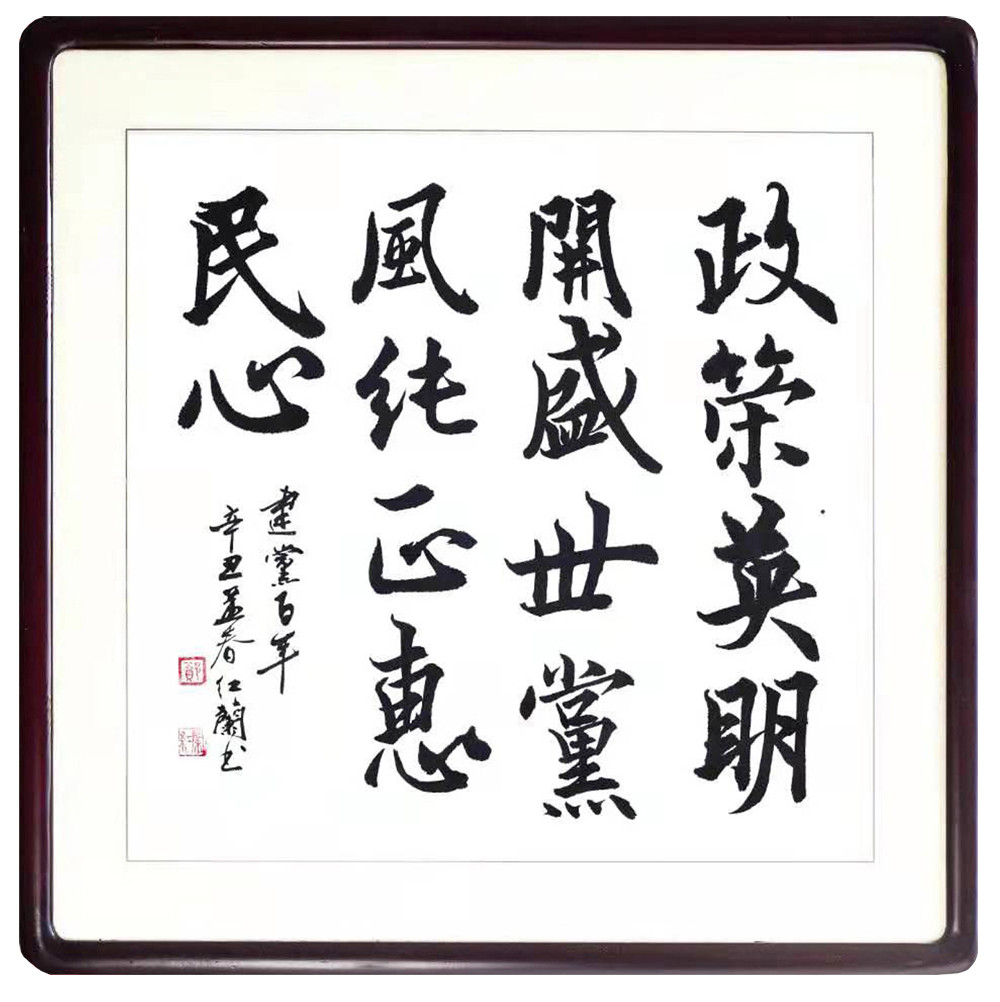 政荣英明
開盛世黨
風純正惠
民心
建黨百年
辛丑孟春红蘭书